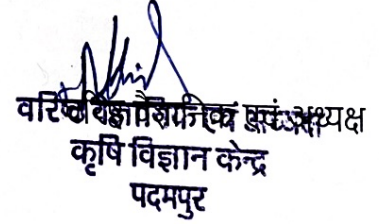 वरिष्ठ वैज्ञानिक एवं अध्यक्ष
कृषि विज्ञान केन्द्र
पदमपुर